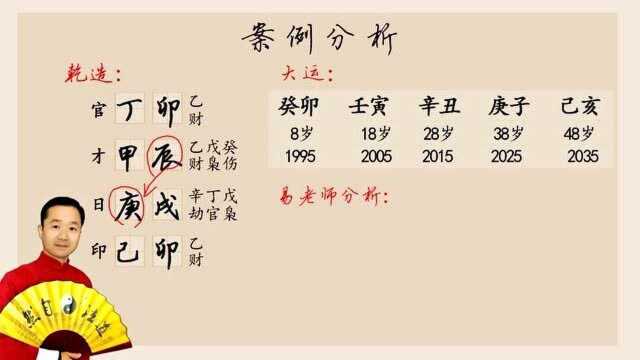 案例分析
乾造：
官 丁 卯 乙财
才 甲 辰 乙戊癸 财枭伤
日 庚 戌 辛丁戊 劫官枭
印 己 卯 乙财
大运：
癸卯 壬寅 辛丑 庚子 己亥
8岁 18岁 28岁 38岁 48岁
1995 2005 2015 2025 2035
易老师分析：
然自法道